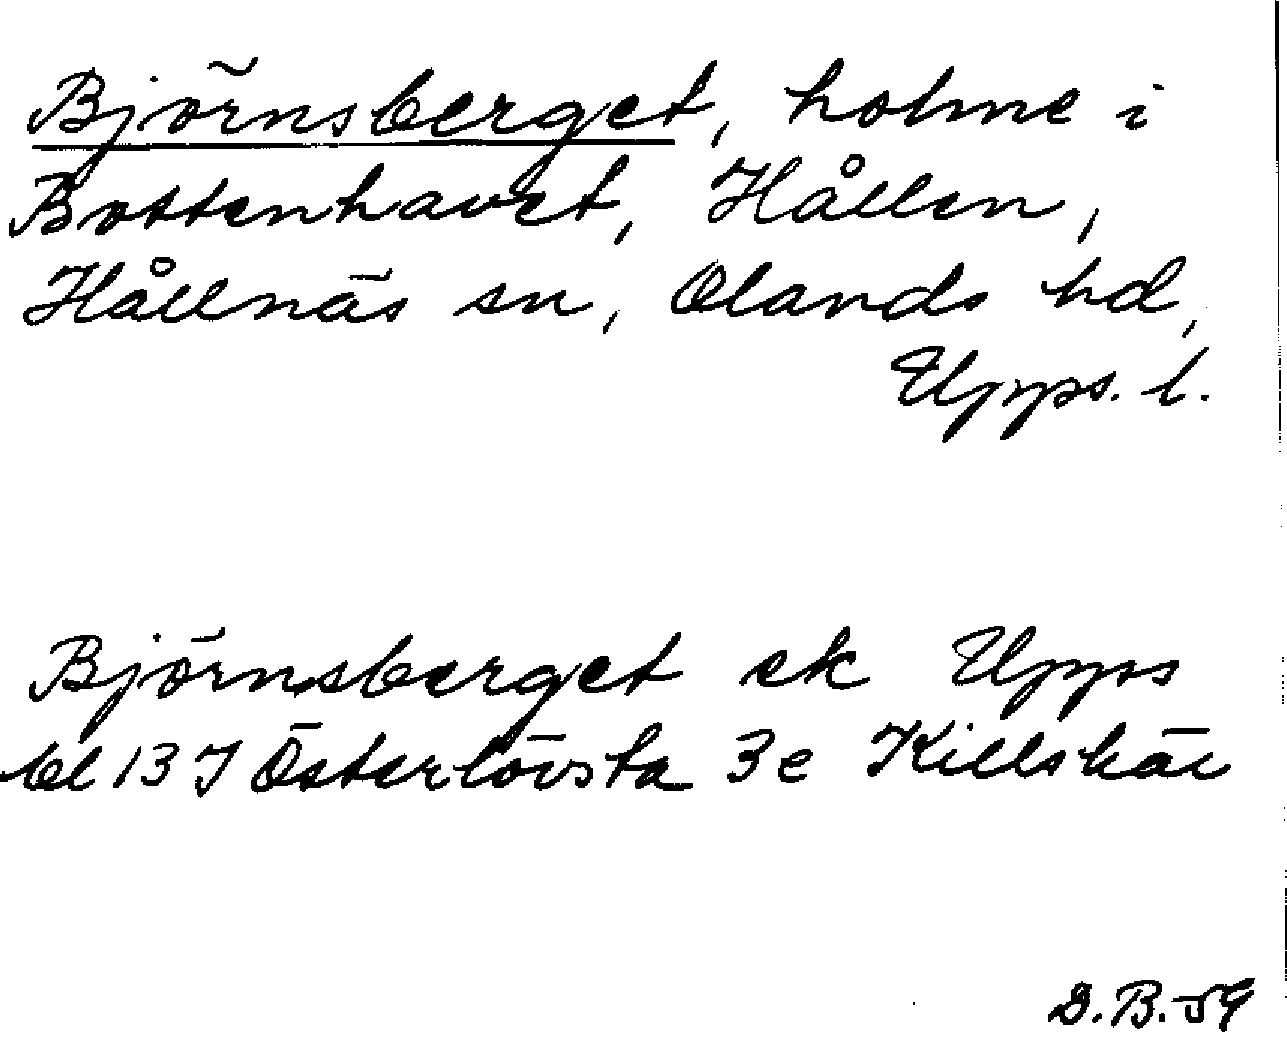 Björnsberget, holme i
Bottenhavet, Hållen,
Hållnäs sn, Olands hd,
Upps. l.
Björnsberget ek Upps
bl 13 J Österlövsta 3e Killskär
D.B.-59